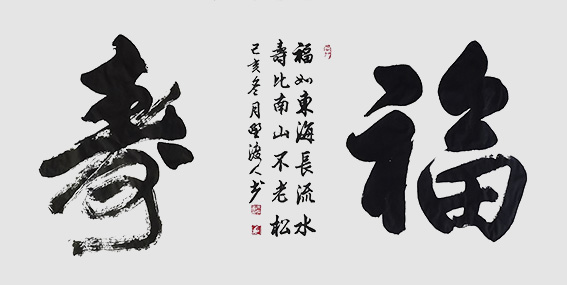 福
福如東海長流水
壽比南山不老松
己亥冬月
人书
壽